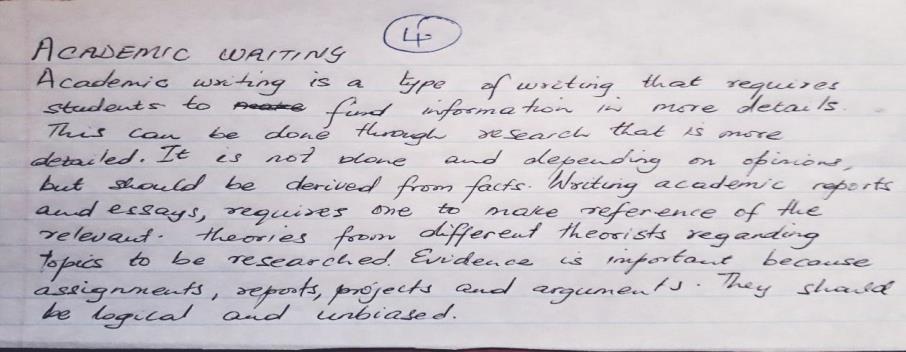 4
ACADEMIC WRITING
Academic writing is a type of writing that requires
students to make find information in more details.
This can be done through research that is more
detailed. It is not done and depending on opinions,
but should be derived from facts. Writing academic reports
and essays, requires one to make reference of the
relevant. theories from different theorists regarding
topics to be researched. Evidence is important because
assignments, reports, projects and arguments. They should
be logical and unbiased.